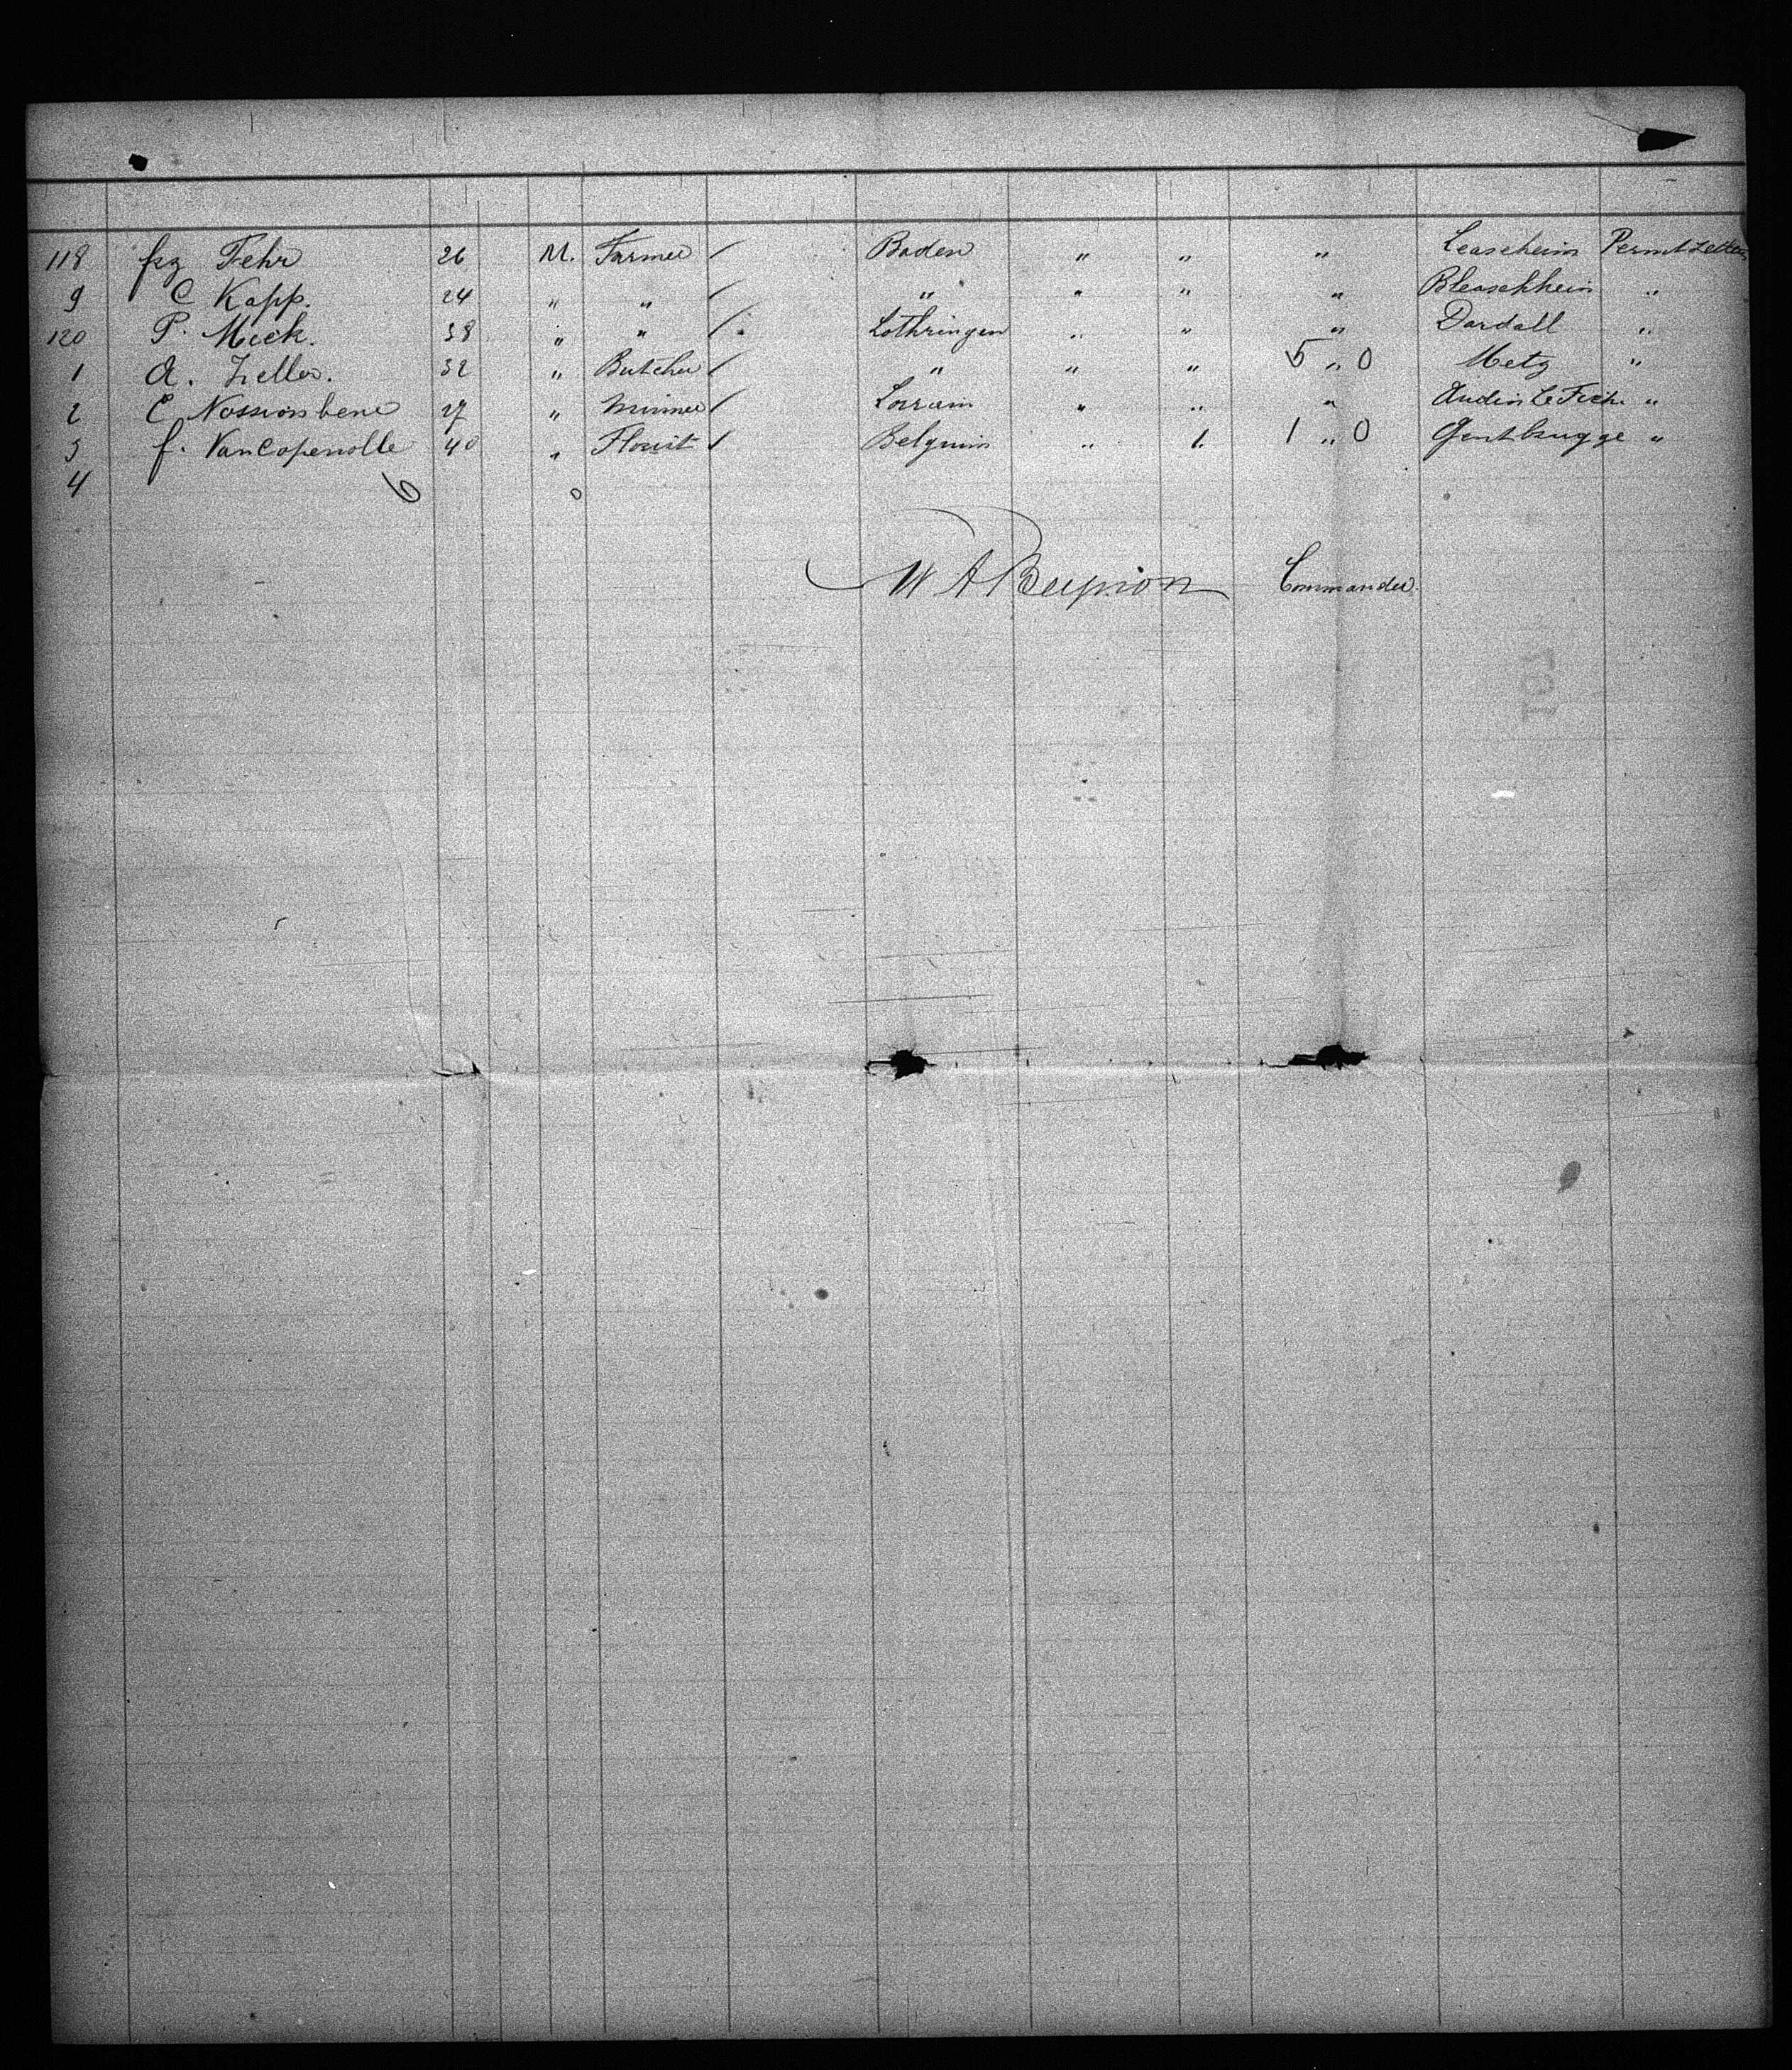 118 Frz Fehr 26 M. Farmer / Baden " " " Leascheim Permt Letter
9 C Kapp. 24 " " / " " " " Bleaschheim "
120 P. Meck. 38 " " / Lothringen " " " Dardall "
1 A. Zeller. 32 " Butcher / " " " 5 " 0 Metz "
2 E Nossionbene 27 " Minner / Lorrain " " " Audin Le Fich "
3 f. VanCopenolle 40 " Florist / Belguim " 1. 1 " 0 Gentbrugge "
4 6 0
W A Commander.
107